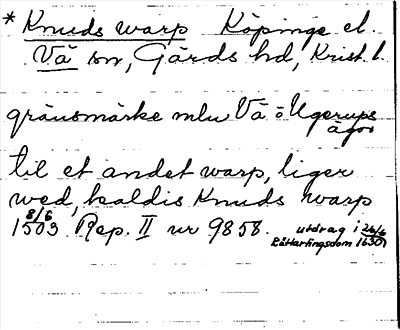 * Knuds warp Köpinge el.
Vä sn, Gärds hd, Krist. l.
gränsmärke mlm Vä o Ugerups
ägor
til et andet warp, liger
wed, kaldis Knuds warp
8/6
1503 Rep. II nr 9858. utdrag i 26/6
Rättartingsdom 1630